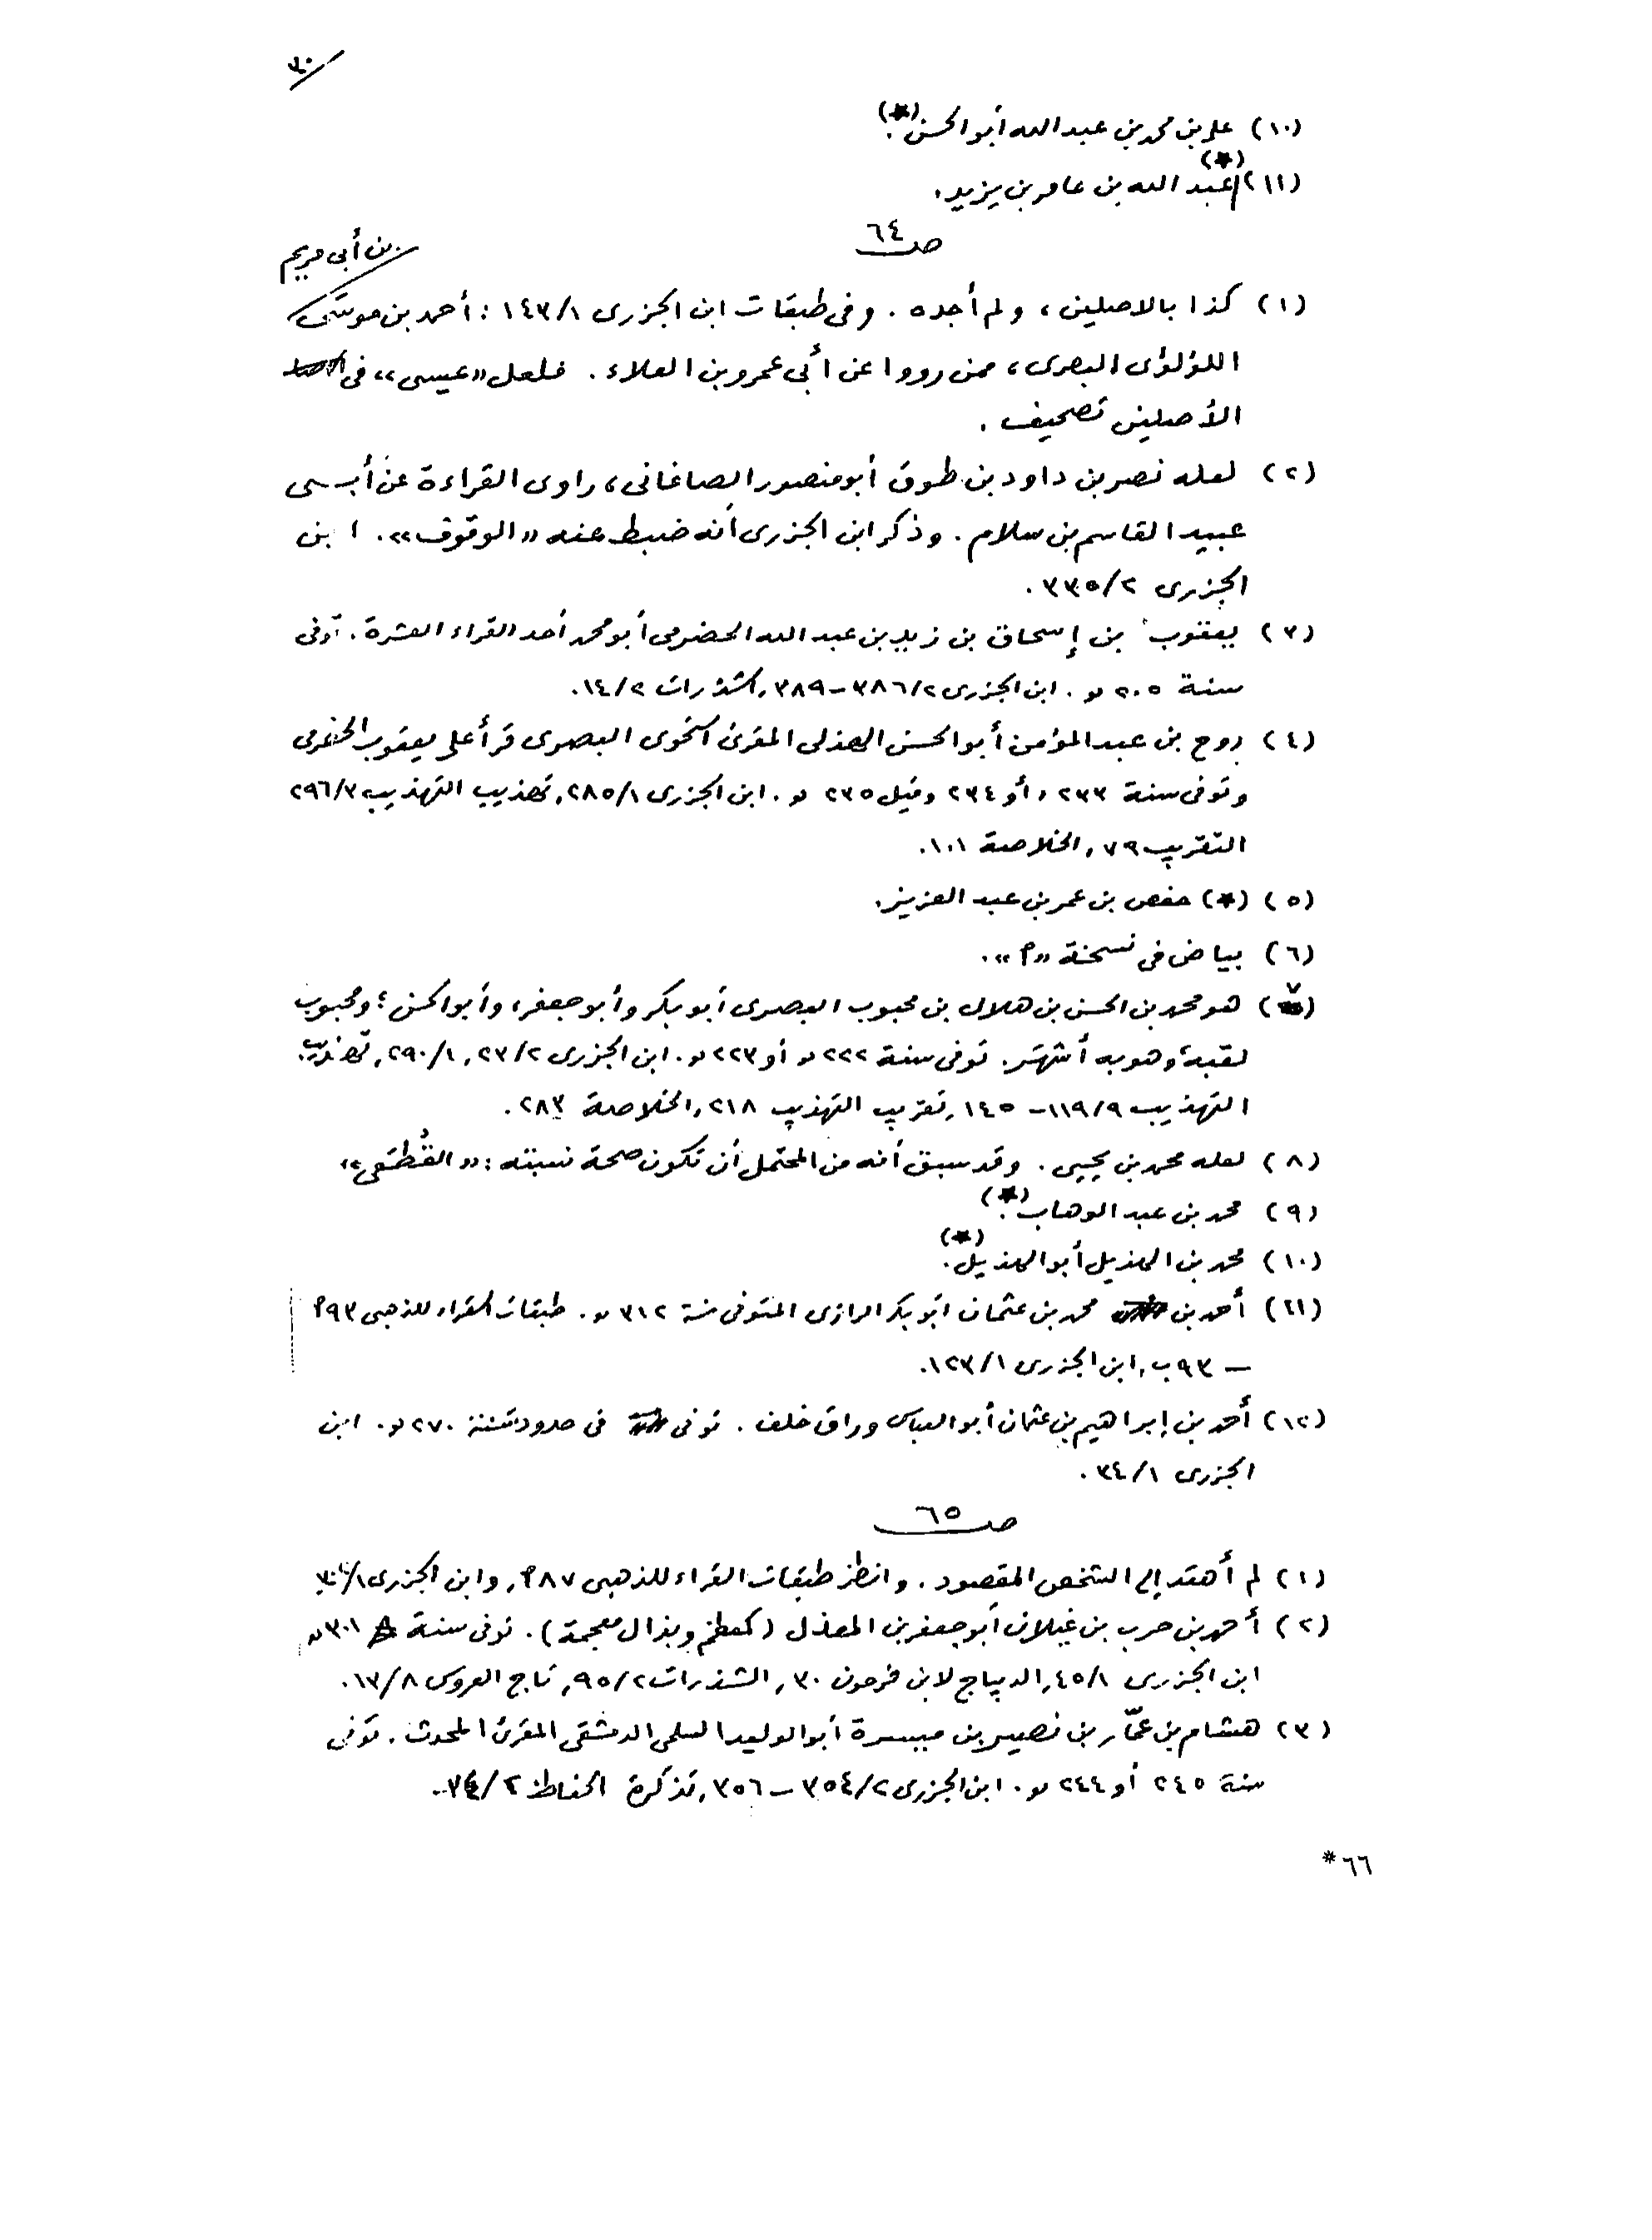 ٣٠
(١٠) على بن محمد بن عبد الله أبو الحسن (*).
(١١) (*) عبد الله بن عامر بن يزيد.
صـ ٦٤
(١) كذا بالاصلين، ولم أجده. وفى طبقات ابن الجزرى ١/١٤٣: أحمد بن موسى بن أبى مريم
اللؤلؤى البصرى، ممن رووا عن أبى عمرو بن العلاء. فلعل «عيسى» فى
الأصلين تصحيف.
(٢) لعله نصر بن داود بن طوق أبو منصور الصاغانى، راوى القراءة عن أبى
عبيد القاسم بن سلام. وذكر ابن الجزرى أنه ضبط عنه «الوقوف». ابن
الجزرى ٢/٣٣٥.
(٣) يعقوب بن إسحاق بن زيد بن عبد الله الحضرمى أبو محمد أحد القراء العشرة. توفى
سنة ٢٠٥ هـ. ابن الجزرى ٢/٣٨٦-٣٨٩، الشذرات ٢/١٤.
(٤) روح بن عبد المؤمن أبو الحسن الهذلى المقرئ النحوى البصرى قرأ على يعقوب الحضرمى
وتوفى سنة ٢٣٣، أو ٢٣٤ وقيل ٢٣٥ هـ. ابن الجزرى ١/٢٨٥، تهذيب التهذيب ٣/٢٩٦
التقريب ٧٩، الخلاصة ١٠١.
(٥) (*) حفص بن عمر بن عبد العزيز.
(٦) بياض فى نسخة «م».
(٧) هو محمد بن الحسن بن هلال بن محبوب البصرى أبو بكر وأبو جعفر، وأبو الحسن؛ ومحبوب
لقبه، وهو به أشهر. توفى سنة ٢٢٢ هـ أو ٢٢٣ هـ. ابن الجزرى ٢/٢٣، ١/٢٩٠، تهذيب
التهذيب ٩/١١٩-١٤٥، تقريب التهذيب ٢١٨، الخلاصة ٢٨٣.
(٨) لعله محمد بن يحيى. وقد سبق أنه من المحتمل أن تكون صحة نسبته: «القُطَعى»
(٩) محمد بن عبد الوهاب (*).
(١٠) محمد بن الهذيل أبو الهذيل (*).
(١١) أحمد بن محمد بن عثمان أبو بكر الرازى المتوفى سنة ٣١٢ هـ. طبقات القراء للذهبى ٩٣م
– ٩٣ب، ابن الجزرى ١/١٢٣.
(١٢) أحمد بن إبراهيم بن عثمان أبو العباس وراق خلف. توفى فى حدود سنة ٢٧٠ هـ. ابن
الجزرى ١/٣٤.
صـ ٦٥
(١) لم أهتد إلى الشخص المقصود. وانظر طبقات القراء للذهبى ٨٧م، وابن الجزرى
(٢) أحمد بن حرب بن غيلان أبو جعفر بن المعذل (كمعظم وبذال معجمة). توفى سنة ٣٠١ هـ
ابن الجزرى ١/٤٥، الديباج لابن فرحون ٣٠، الشذرات ٢/٩٥، تاج العروس ٨/١٣.
(٣) هشام بن عمّار بن نصير بن ميسرة أبو الوليد السلمى الدمشقى المقرئ المحدث. توفى
سنة ٢٤٥ أو ٢٤٤ هـ. ابن الجزرى ٢/٣٥٤-٣٥٦، تذكرة الحفاظ
٦٦ *